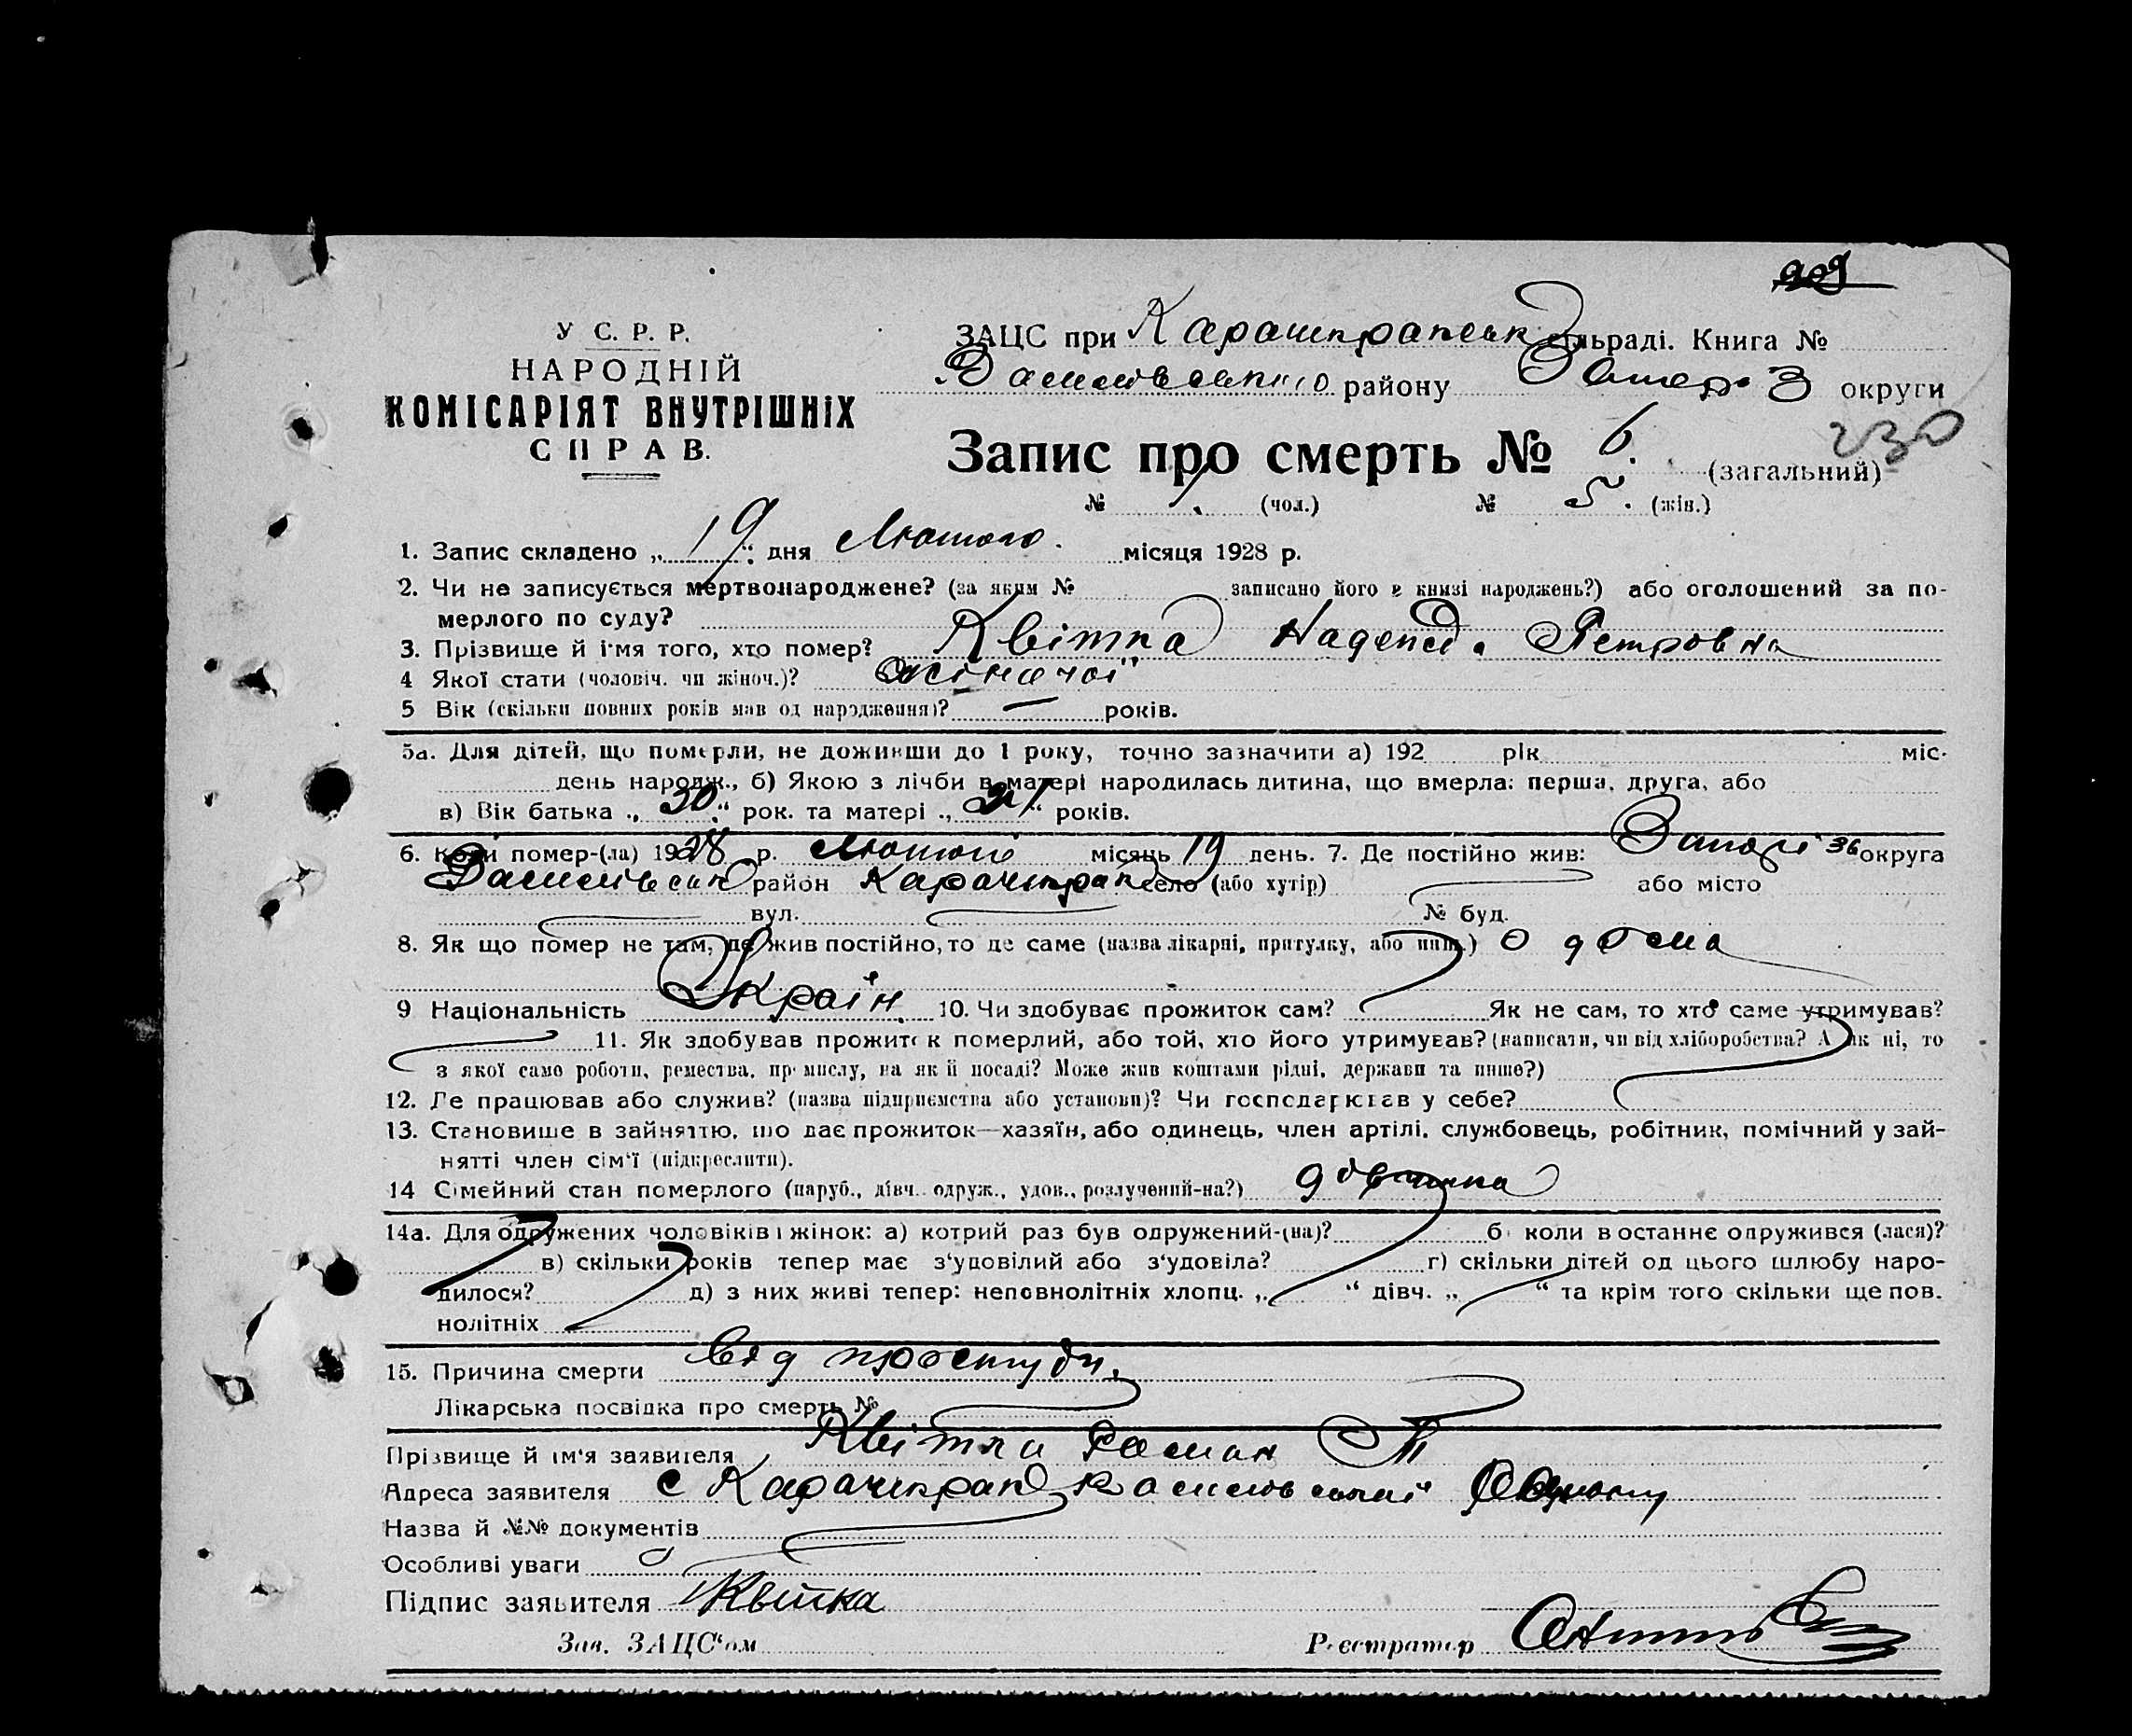 909
У С. Р. Р.
НАРОДНІЙ
КОМІСАРІЯТ ВНУТРІШНІХ
СПРАВ.
ЗАЦС при Карачекракськ сільраді. Книга №
Василівського району Запоріз округи
230
Запис про смерть № 6. (загальний)
№ (чол.) № 5. (жін.)
1. Запис складено „19“ дня Лютого. місяця 1928 р.
2. Чи не записується мертвонароджене? (за яким № записано його в книзі народжень?) або оголошений за по-
мерлого по суду?
3. Прізвище й імя того, хто помер? Квітка Надежда Петровна
4 Якої стати (чоловіч. чи жіноч.)? жіночої
5 Вік (скільки повних років мав од народження)? — років.
5а. Для дітей, що померли, не доживши до 1 року, точно зазначити а) 192 рік міс.
день народж., б) Якою з лічби в матері народилась дитина, що вмерла: перша, друга, або
в) Вік батька „30“ рок. та матері „21“ років.
6. Коли помер-(ла) 1928 р. Лютого місяць 19 день. 7. Де постійно жив: Запоріз округа
Василівськ район Карачекрак село (або хутір) або місто
вул. № буд.
8. Як що помер не там, де жив постійно, то де саме (назва лікарні, притулку, або инш.) дома
9 Національність Україн. 10. Чи здобуває прожиток сам? Як не сам, то хто саме утримував?
11. Як здобував прожиток померлий, або той, хто його утримував? (написати, чи від хліборобства? А як ні, то
з якої само роботи, ремества, промислу, на якій посаді? Може жив коштами рідні, держави та инше?)
12. Де працював або служив? (назва підприємства або установи)? Чи господарював у себе?
13. Становище в зайняттю, що дає прожиток—хазяїн, або одинець, член артілі, службовець, робітник, помічний у зай-
нятті член сім‘ї (підкреслити).
14 Сімейний стан померлого (паруб., дівч. одруж., удов., розлучений-на?) дівчина
14а. Для одружених чоловіків і жінок: а) котрий раз був одружений-(на)? б коли в останнє одружився (лася)?
в) скільки років тепер має з‘удовілий або з‘удовіла? г) скільки дітей од цього шлюбу наро-
дилося? д) з них живі тепер: неповнолітніх хлопц. „ “ дівч. „ “ та крім того скільки ще пов.
нолітніх
15. Причина смерти від простуди.
Лікарська посвідка про смерть №
Прізвище й ім‘я заявителя Квітка Роман
Адреса заявителя с Карачекрак Василівської
Назва й №№ документів
Особливі уваги
Підпис заявителя Квитка
Зав. ЗАЦС‘ом Реєстратор